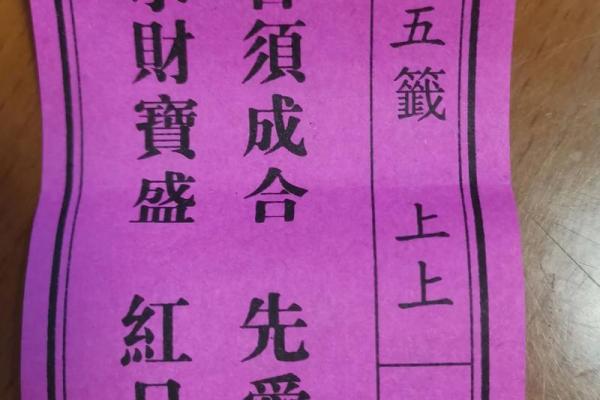 五籤 上上
須成合 先愛
財寶盛 紅